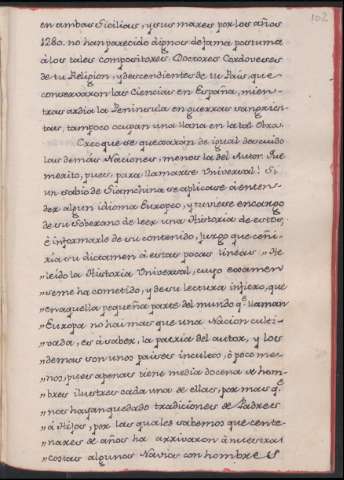 102
en ambas Sicilias, y sus mares por los años
1280. no han parecido dignos de fama postuma
á los tales compositores Doctores Cordoveses
de tu Religion, y descendientes de tu Pais, que
conservaron las Ciencias en España, mien-
tras ardia la Peninsula en guerras sangrien-
tas, tampoco ocupan una llana en la tal Obra.
Creo que se quexarán de igual descuido
las demás Naciones, menos la del Autor. Que
merito, pues, para llamarse Universal! Si
un sabio de Siamchina se aplicase á enten-
der algun idioma Europeo, y tuviese encargo
de su Soberano de leer una Historia de estos,
é informarle de su contenido, juzgo que ceñi-
ria su dictamen á estas pocas lineas. "He
"leido la Historia Universal, cuyo examen
"se me ha cometido, y de su lectura infiero, que
"en aquella pequeña parte del mundo q.e llaman
"Europa no hai mas que una Nacion culti-
"vada, es á saber, la patria del autor, y los
"demas son unos paises incultos, ó poco me-
"nos, pues apenas tiene media docena de hom-
"bres ilustres cada una de ellas, por mas q.e
"nos hayan quedado tradiciones de Padres
"á Hijos, por las quales sabemos que cente-
"nares de años ha arrivaron á nuestras
"costas algunos Navios con hombres